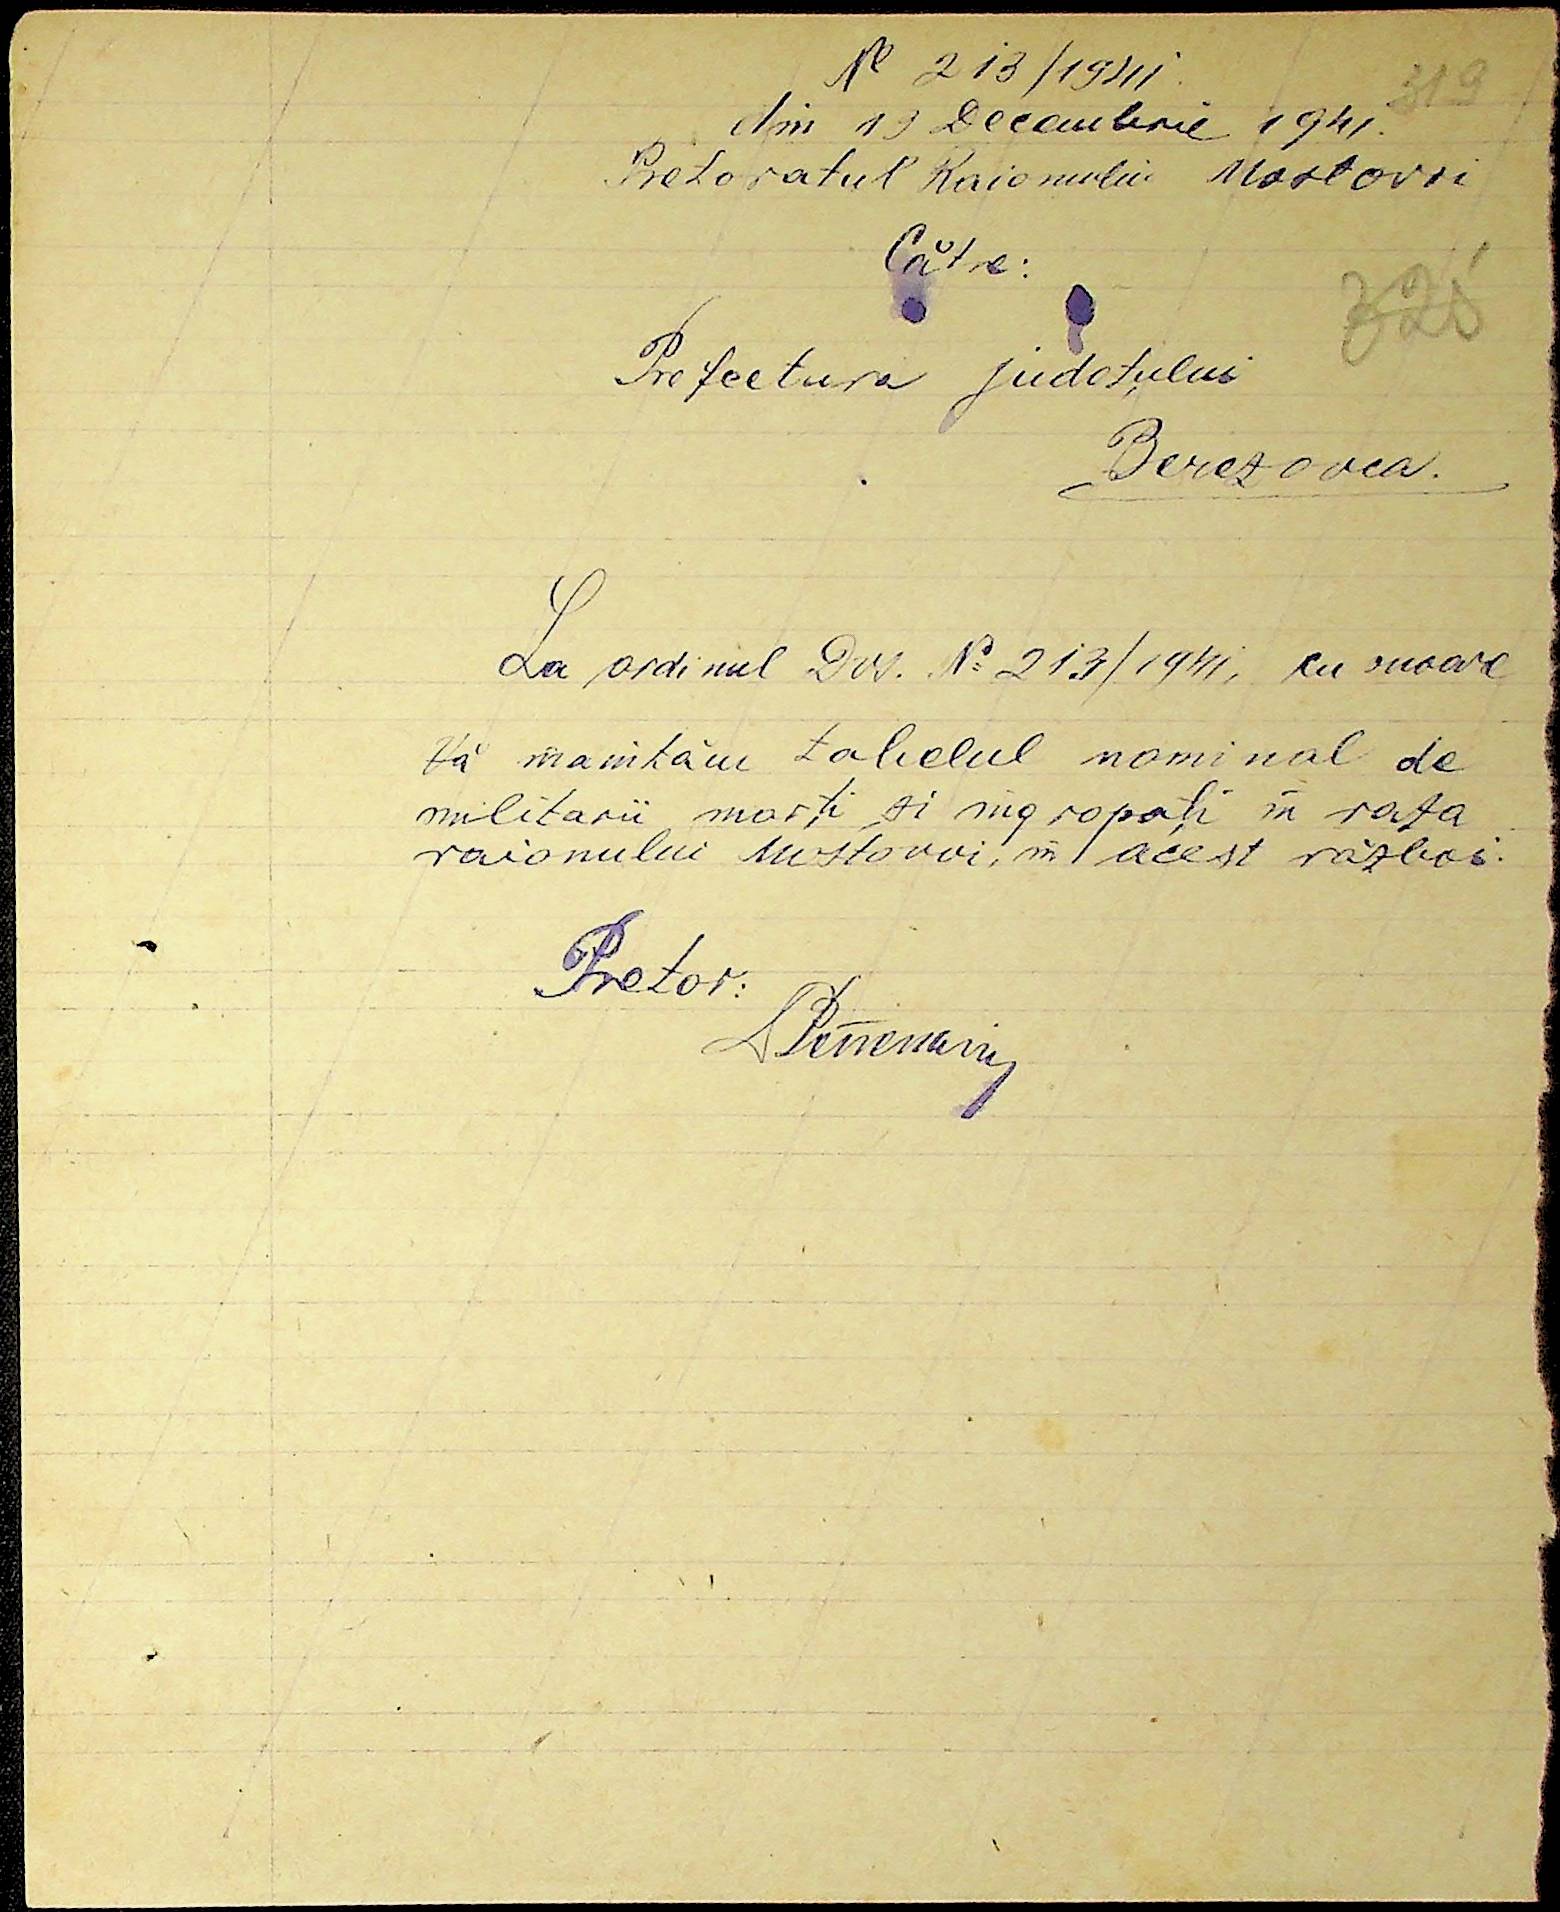 № 213/1941.
319
din 19 Decembrie 1941.
Pretoratul Raionului Mostovoi
Către:
325
Prefectura județului
Berezovca.
La ordinul Dvs. № 213/1941, cu onoare
Vă inaintăm tabelul nominal de
militarii morți și ingropați in raza
raionului Mostovoi, in acest război.
Pretor: